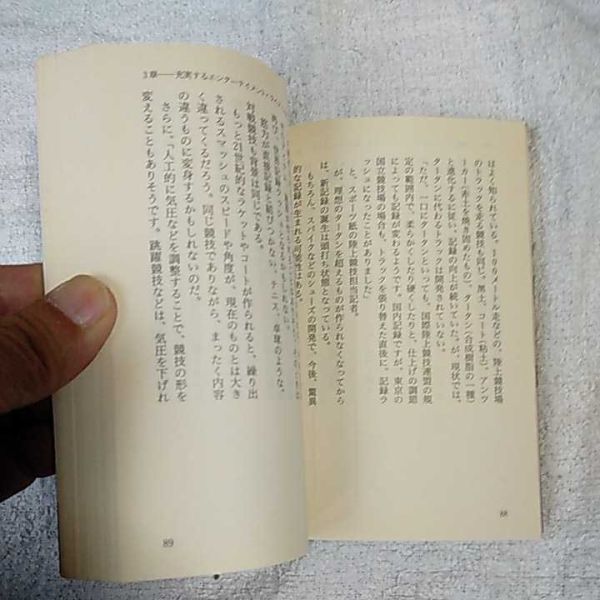 はよく知られている。100メートル走などの、陸上競技場
のトラックを走る競技も同じ。黒土、コート(粘土)、アンツ
ーカー(赤土を焼き固めたもの)、タータン(合成樹脂の一種)
と進化するに従い、記録の向上が続いていた。が、現状では、
タータンに代わるトラックは開発されていない。
「ただ、一口にタータンといっても、国際陸上競技連盟の規
定の範囲内で、柔らかくしたり硬くしたりと、仕上げの調節
によっても記録が変わるようです。国内記録ですが、東京の
国立競技場の場合も、トラックを張り替えた直後に、記録ラ
ッシュになったことがありました」
と、スポーツ紙の陸上競技担当記者。
が、理想のタータンを超えるものが作られなくなってから
は、新記録の誕生は頭打ち状態となっている。
もちろん、スパイクなどのシューズの開発で、今後、驚異
的な記録が生まれる可能性はある。
88
3章──充実するエンターテイメント
効力が直接記録と結びつかない、テニス、卓球のような、
対戦競技も背景は同じである。
もっと21世紀的なラケットやコートが作られると、繰り出
されるスマッシュのスピードや角度が、現在のものとは大き
く違ってくるだろう。同じ競技でありながら、まったく内容
の違うものに変身するかもしれないのだ。
さらに、「人工的に気圧などを調整することで、競技の形を
変えることもありそうです。跳躍競技などは、気圧を下げれ
89